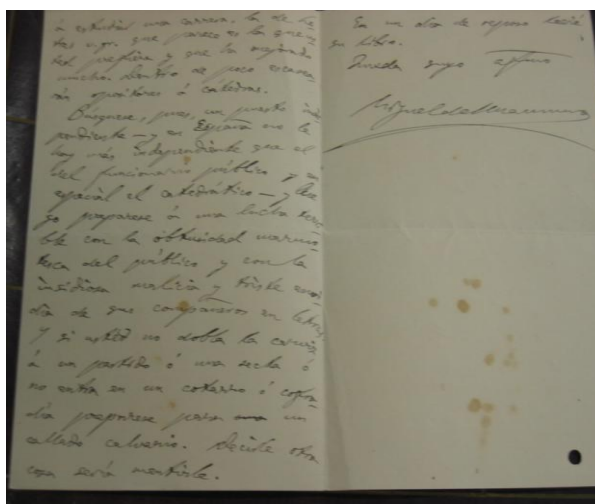 á estudiar una carrera, la de Le-
tras v.gr. que parece es la que us-
ted prefiere y que ha mejorado
mucho. Dentro de poco escasea-
rán opositores á cátedras.
Búsquese, pues, un puesto inde-
pendiente — y en España no le
hay más independiente que el
del funcionario público y en
especial el catedrático — y lue-
go prepárese á una lucha terri-
ble con la obtusidad
del público y con la
insidiosa malicia y triste envi-
dia de sus compañeros en letras.
Y si usted no dobla la cerviz
á un partido ó una secta ó
no entra en un cotarro ó cofra-
día prepárese para un
callado calvario. Decirle otra
cosa sería mentirle.
En un día de reposo leeré
su libro.
Queda suyo affmo
Miguel de Unamuno